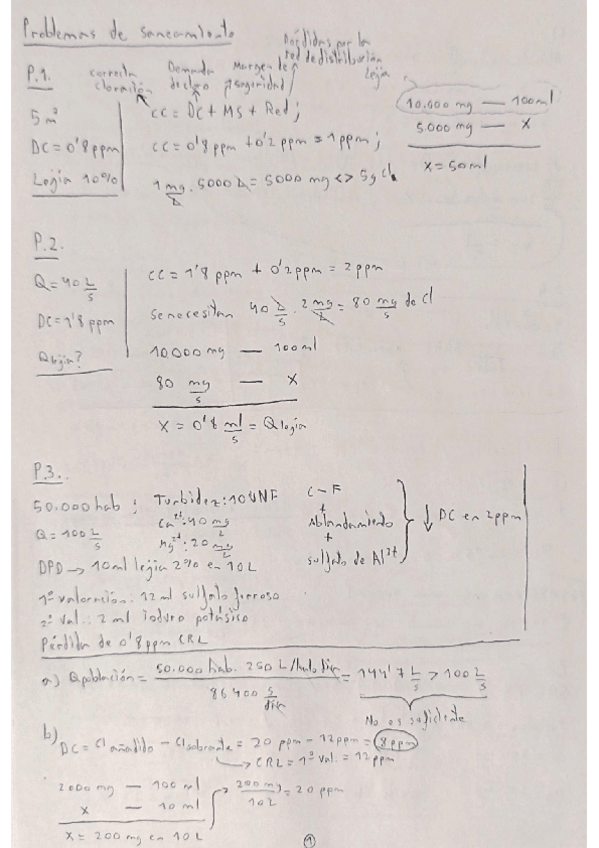 Problemas de saneamiento
Pérdidas por la
red de distribución
P.1.
correcta
cloración
Demanda
de cloro
Margen de
seguridad
Lejía
5 m³
CC = DC + MS + Red;
10.000 mg — 100 ml
DC = 0'8 ppm
CC = 0'8 ppm + 0'2 ppm = 1 ppm;
5000 mg — X
Lejía 10%
X = 50 ml
1 mg/L · 5000 L = 5000 mg <> 5g cl
P.2.
Q = 40 L/s
CC = 1'8 ppm + 0'2 ppm = 2 ppm
DC = 1'8 ppm
Se necesitan 40 L/s · 2 mg/L = 80 mg/s de cl
Q lejía?
10.000 mg — 100 ml
80 mg/s — X
X = 0'8 ml/s = Q lejía
P.3.
50.000 hab ; Turbidez: 10 UNF
Q = 100 L/s
Ca²⁺: 40 mg/L
Mg²⁺: 20 mg/L
C-F
+
Ablandamiento
+
sulfato de Al³⁺
↓ DC en 2 ppm
DPD → 10 ml lejía 2% en 10 L
1ª valoración: 12 ml sulfato ferroso
2ª val.: 2 ml ioduro potásico
Pérdida de 0'8 ppm CRL
a) Q población = 50.000 hab · 250 L/hab·día / 86400 s/día = 144'7 L/s > 100 L/s
No es suficiente
b) DC = Cl añadido – Cl sobrante = 20 ppm – 12 ppm = 8 ppm
→ CRL = 1ª val. = 12 ppm
2000 mg — 100 ml
X — 10 ml
→ 200 mg / 10 L = 20 ppm
X = 200 mg en 10 L
1